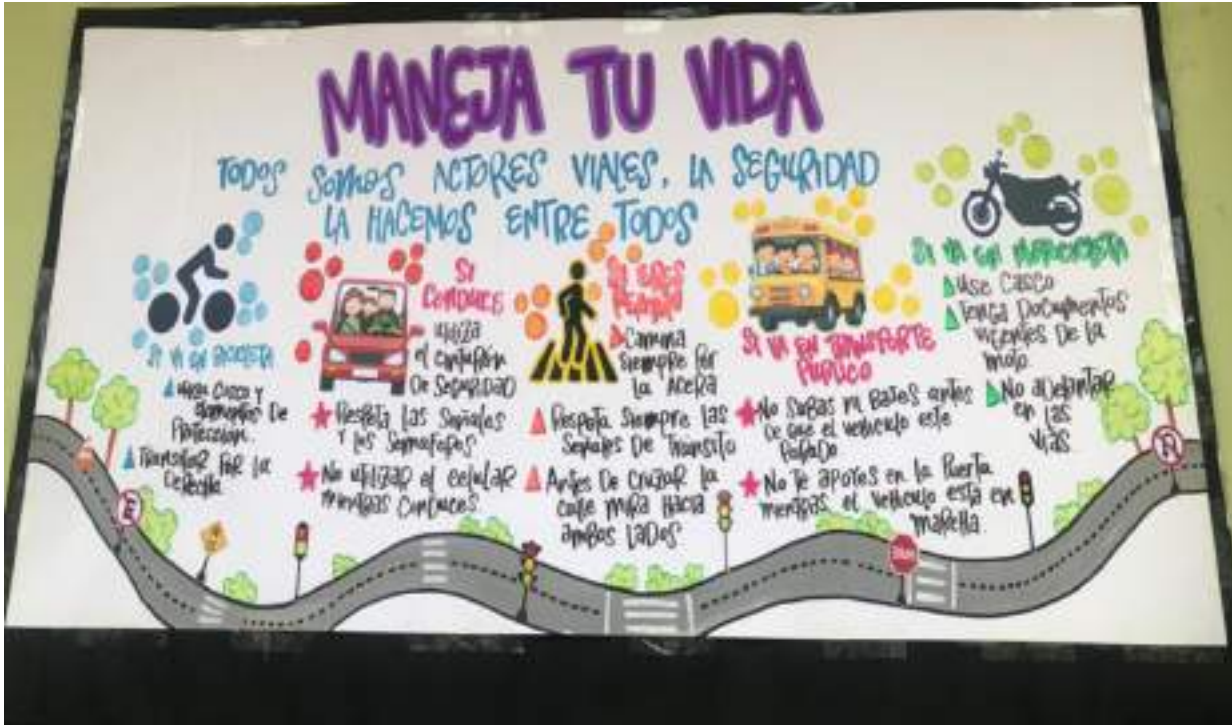 MANEJA TU VIDA
TODOS SOMOS ACTORES VIALES, LA SEGURIDAD
LA HACEMOS ENTRE TODOS
SI VA EN BICICLETA
USA CASCO Y
ELEMENTOS DE
PROTECCIÓN.
TRANSITAR POR LA
DERECHA.
SI
CONDUCE
UTILIZA
EL CINTURÓN
DE SEGURIDAD
RESPETA LAS SEÑALES
Y LOS SEMÁFOROS
NO UTILIZAR EL CELULAR
MIENTRAS CONDUCES
SI ERES
PEATÓN
CAMINA
SIEMPRE POR
LA ACERA
RESPETA SIEMPRE LAS
SEÑALES DE TRÁNSITO
ANTES DE CRUZAR LA
CALLE MIRA HACIA
AMBOS LADOS.
SI VA EN TRANSPORTE
PÚBLICO
NO SUBAS NI BAJES ANTES
DE QUE EL VEHÍCULO ESTE
PARADO
NO TE APOYES EN LA PUERTA
MIENTRAS EL VEHÍCULO ESTA EN
MARCHA.
SI VA EN MOTOCICLETA
USE CASCO
TENGA DOCUMENTOS
VIGENTES DE LA
MOTO.
NO ADELANTAR
EN LAS
VÍAS.